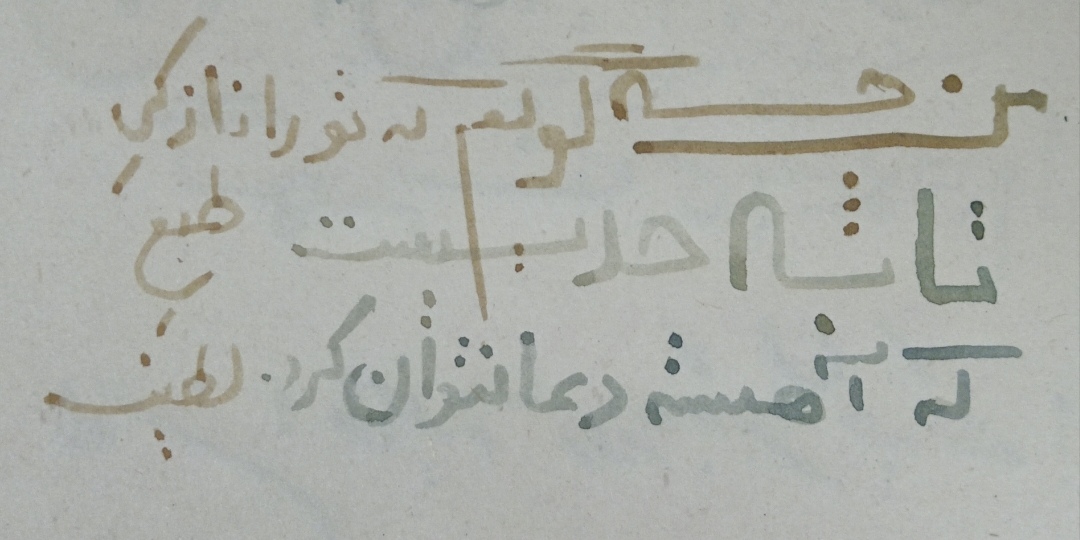 من چه گویم که تو را نازکی
تا به حدیست طبع
که آهسته دعا نتوان کرد لطیف